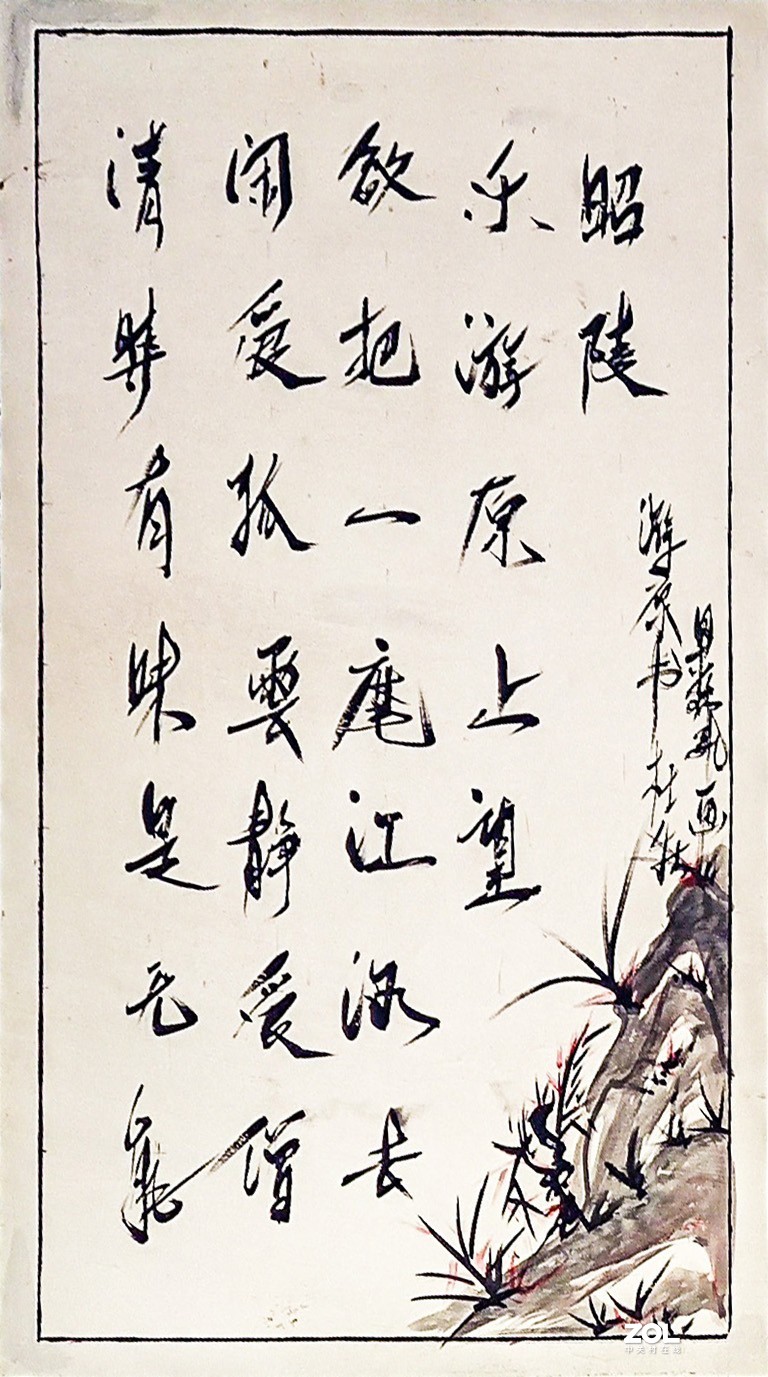 清時有味是无能
闲爱孤雲静爱僧
欲把一麾江海去
乐游原上望
昭陵
游原书 杜牧
画
ZOL
中关村在线